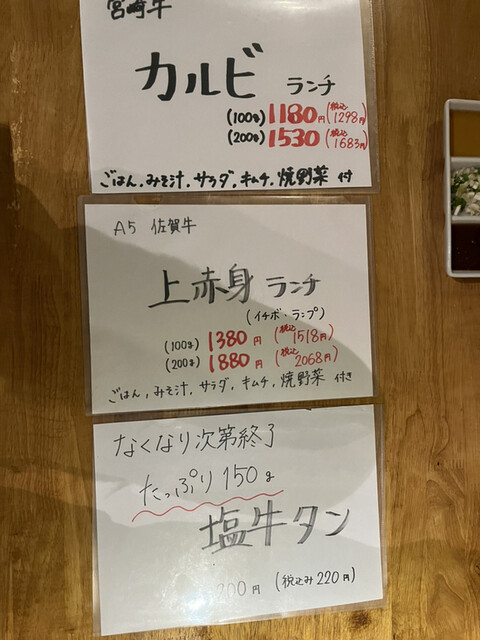 宮崎牛
カルビ ランチ
(100g) 1180円 (税込1298円)
(200g) 1530 (税込1683円)
ごはん,みそ汁,サラダ,キムチ,焼野菜 付
A5 佐賀牛
上赤身 ランチ
(イチボ・ランプ)
(100g) 1380円 (税込1518円)
(200g) 1880円 (税込2068円)
ごはん,みそ汁,サラダ,キムチ,焼野菜 付き
なくなり次第終了
たっぷり150g
塩牛タン
00円 (税込み220円)